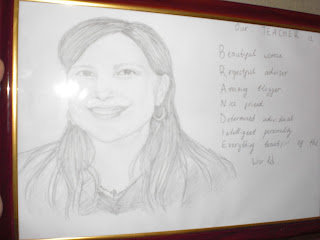 Our TEACHER is
Beautiful woman
Respectful adviser
Nice friend
Determined individual
Intelligent personality
Everything of the
World